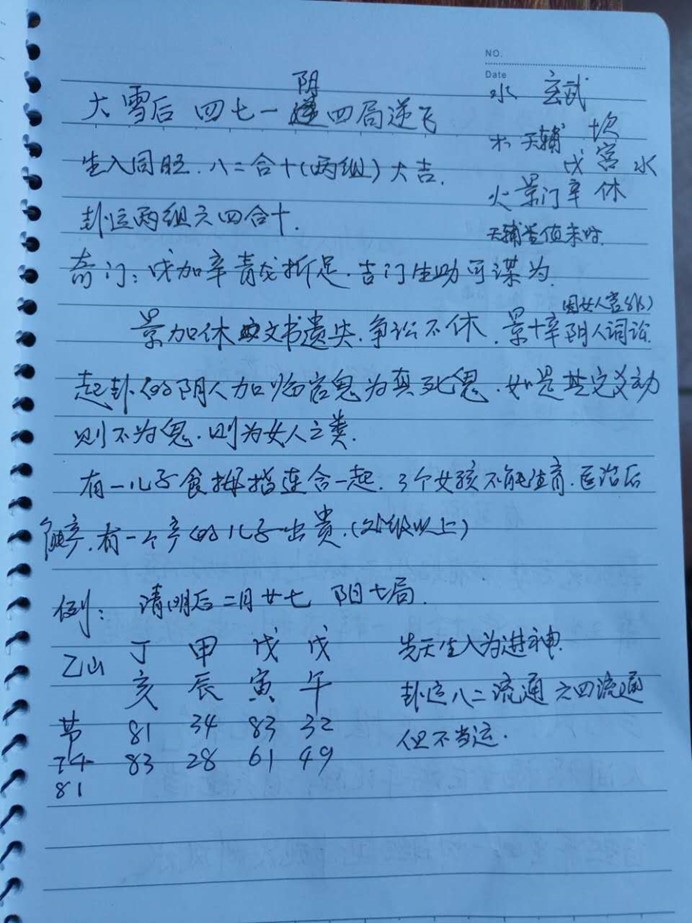 NO.
Date
水 玄武
木 天辅 坎
戊 宫 水
火 景门 辛 休
天辅 值 未时
大雪后 四七一 阴 四局逆飞
生入同旺.八二合十(两组)大吉.
卦运两组六四合十.
奇门:戊加辛青龙折足.吉门生助可谋为.
(因女人官非)
景加休 文书遗失,争讼不休.景+辛阴人词讼.
起卦 的阴人加临官鬼为真死鬼.如是其它爻动
则不为鬼.则为女人之类.
有一儿子食拇指连合一起.3个女孩不能生育.医治后
能产.有一个辛的儿子出贵.(处级以上)
例: 清明后二月廿七 阳七局.
乙山 丁 甲 戊 戊 先天生入为进神.
亥 辰 寅 午 卦运八二流通 六四流通
节 81 34 83 32 但不当运.
74 83 28 61 49
81